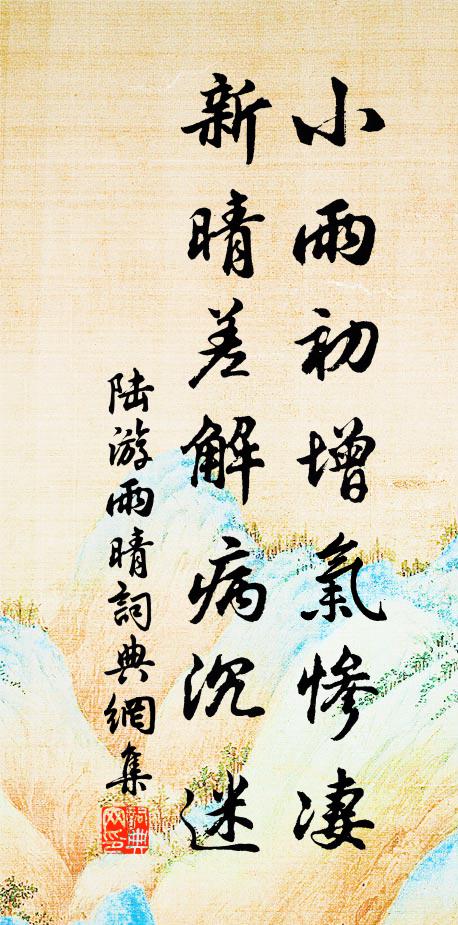 小雨初增氣慘凄
新晴差解病沉迷
陆游雨晴詞典網集
詞典網印